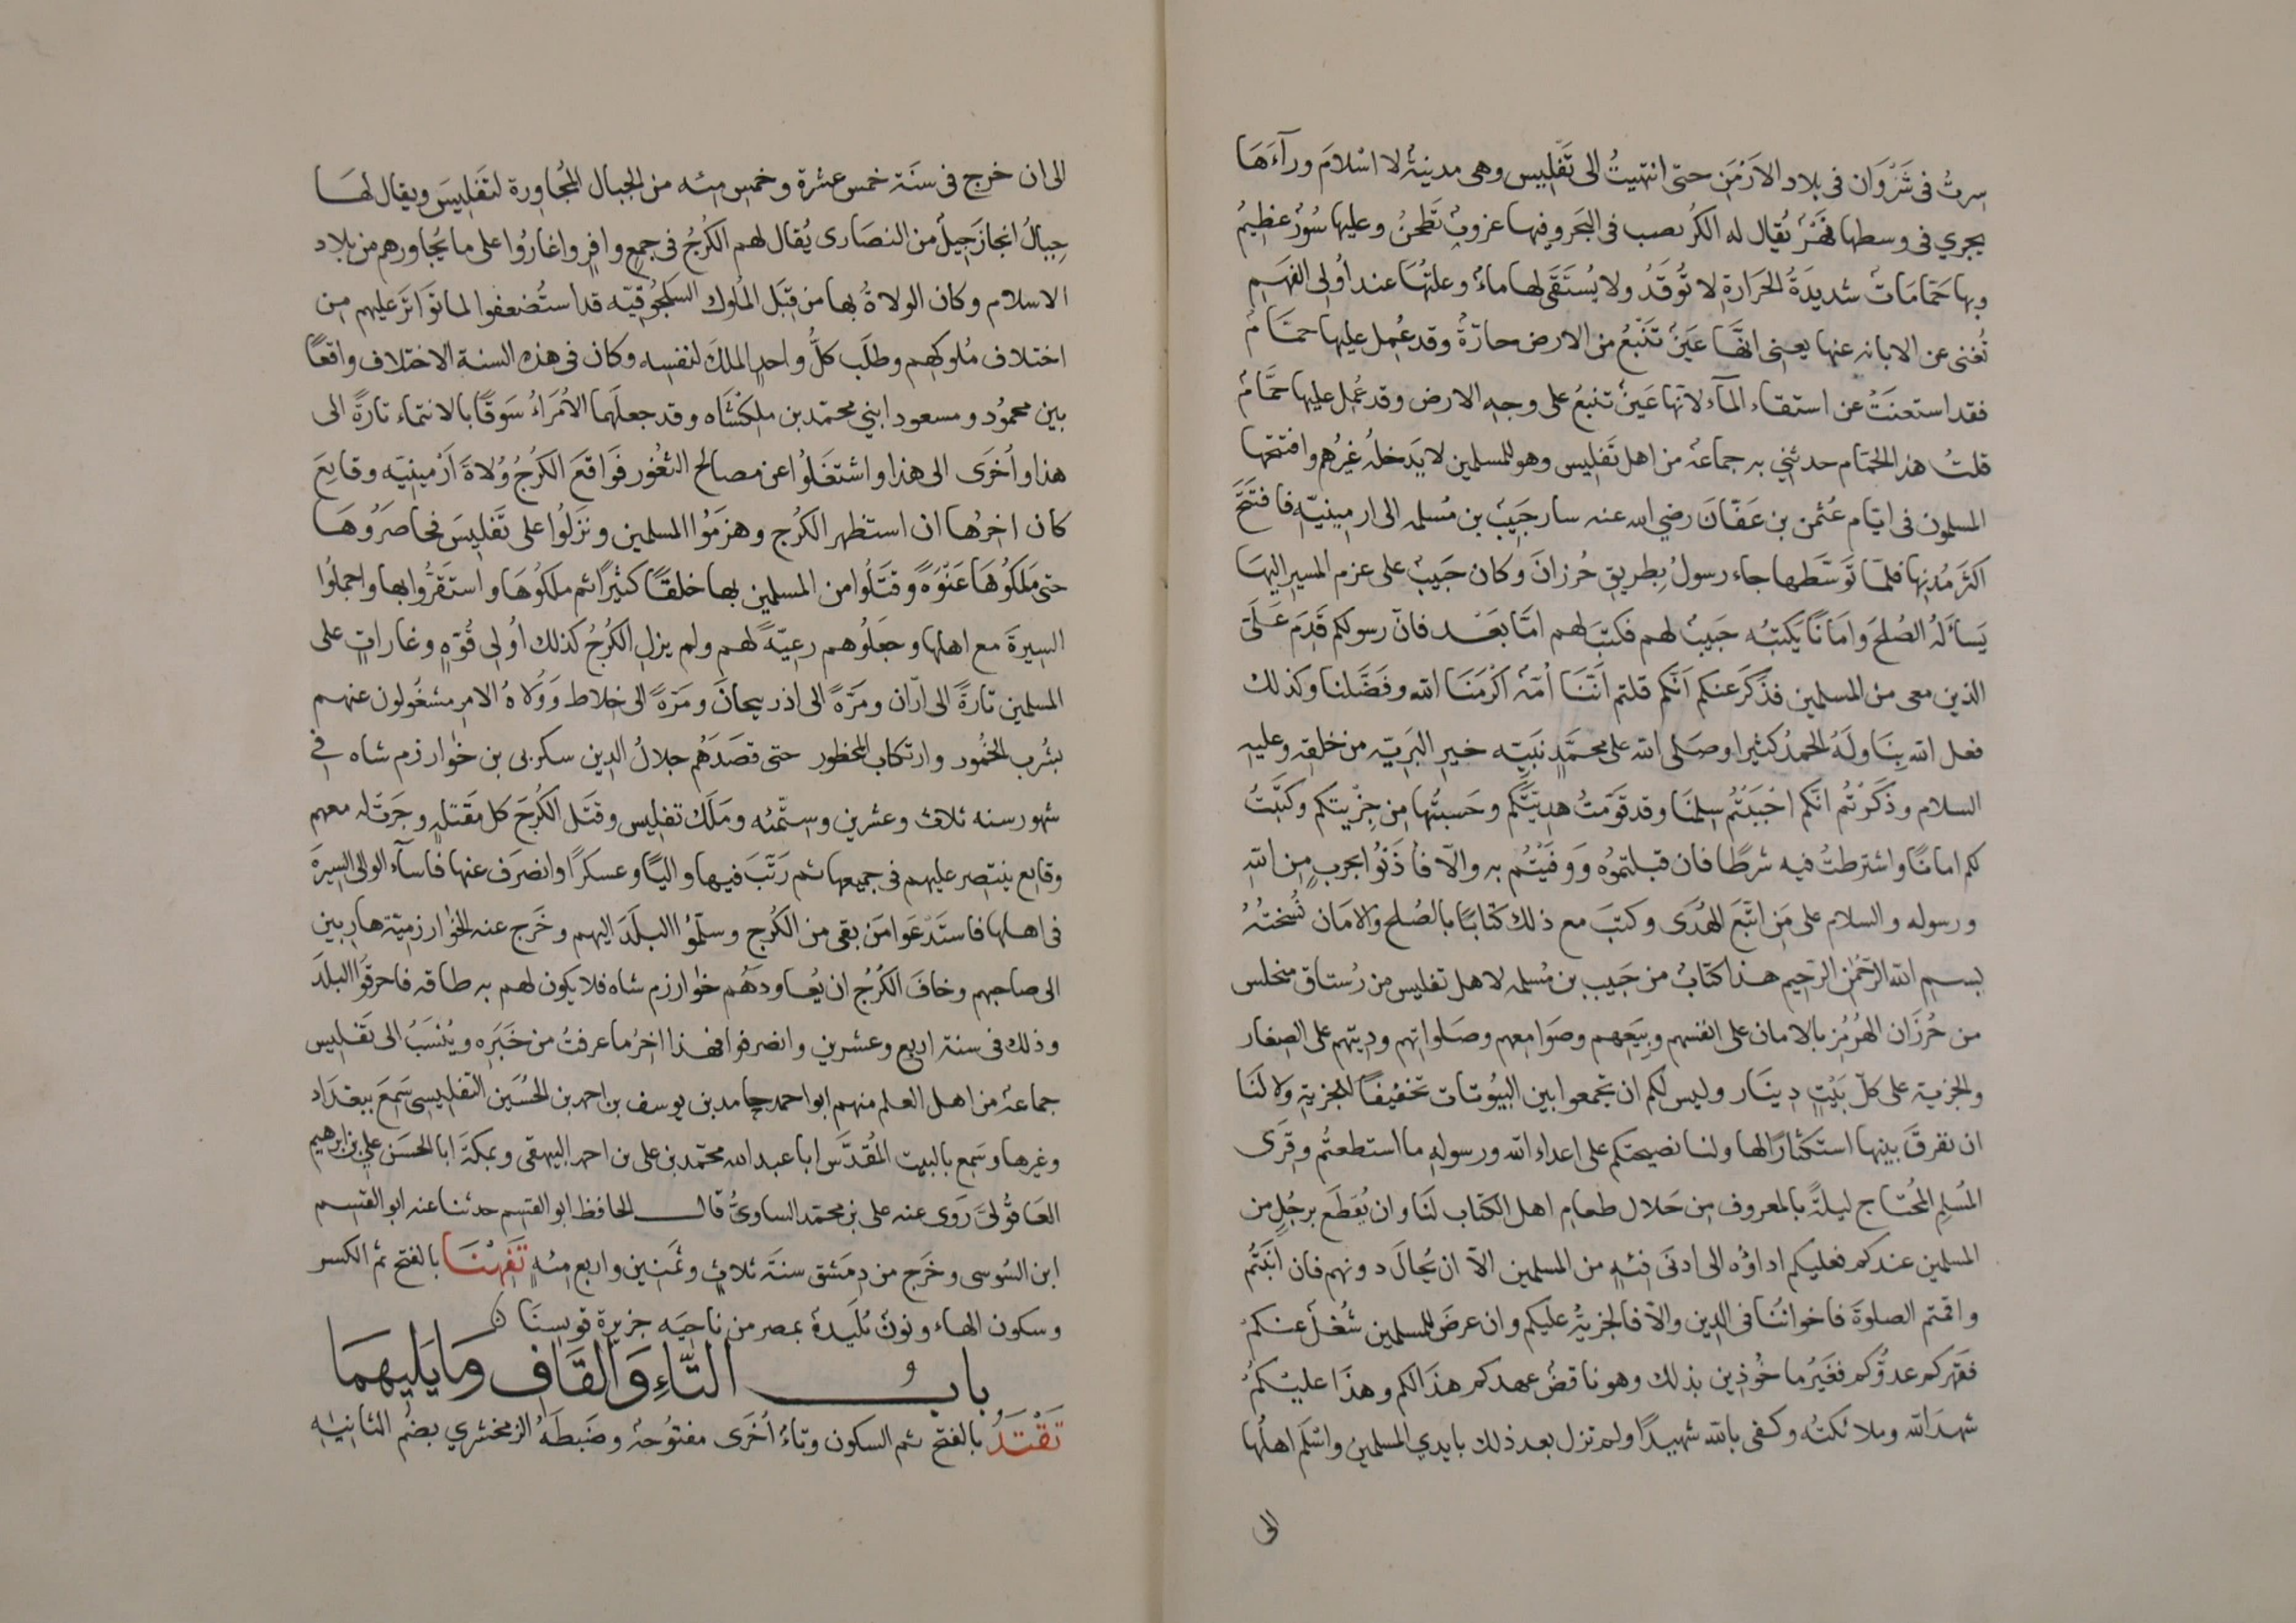 سِرتُ فى شَرْوَان فى بلاد الاَرْمَن حتى انتهيتُ الى تَفْلِيس وهى مدينةٌ لا اسْلامَ ورآءَهَا
يجرى فى وسطها نَهَرٌ يُقال له الكُر يصب فى البَحَر وفيها عروبٌ تَطْحَنُ وعليها سُورٌ عظيمٌ
وبها حَمّامَاتٌ شديدَةُ الحَرَارةِ لا تُوقَدُ ولا يُسْتَقَى لها ماءٌ وعلتُهَا عند اُولى الفَهَمِ
تُغنى عن الابانه عنها يعنى انَّهَا عَيَنٌ تَنْبُعُ من الارض حارّةٌ وقد عُمِل عليها حمَّامٌ
فقد استعنَتْ عن استقاء المآء لانها عَينٌ تنبعُ على وجهِ الارض وقد عُمِل عليها حمَّامٌ
قلتُ هذا الحمّام حدثنى به جماعةٌ من اهل تَفْلِيس وهو للمسلمين لا يَدخلُه غَيرُهم وافتتحها
المسلمون فى ايّام عُثمن بن عَفّانَ رضي الله عنه سار حَبِيبُ بن مُسلمه الى ارمِينيّه فافتَتَحَ
اكثَرَ مُدنِها فلمّا تَوَسَّطها جاء رسولُ بِطريقِ حُرزانَ وكان حَبيبٌ على عزمِ المسير اليهَا
يَسأَلَهُ الصُلحَ وامَانًا يَكتبُه حَبيبُ لهم فكتبَ لهم امّا بَعْد فانّ رسولكم قَدِمَ عَلَىَّ
الذين معى من المسلمين فذَكَرَ عنكم اَنّكم قلتم اَنَّنَا اُمّةٌ اكْرَمَنَا الله وفَضَّلنا وكذلك
فعل الله بِنَا ولَهُ الحمدُ كثيرا وصَلى الله على محَمَّدٍ نَبيّه خيرِ البَرَيّه من خلقِه وعليه
السلام وذَكَرْتُم انّكم احْبَبْتُم سِلمَنَا وقد قَوّمَتُ هدِيّتَكم وحَسبتُها مِن جِزْيتكم وكتَبْتُ
لكم امانًا واشترطتُ فيه شرطًا فان قبلتموُه وَوفَيْتُم به والّا فأذَنُوا بحربٍ مِن اللهِ
ورسوله والسلام على مَن اتّبَعَ الهُدَى وكتبَ مع ذلك كتابًا بالصُلح والامَان نُسْختُهُ
بسمِ الله الرّحمٰن الرّحيم هذا كتابٌ من حَبيب بن مُسلمه لاهل تفليس من رُستاق منجليس
من حُرزَان الهُرْمُز بالامان على انفسهم وبِيَعهم وصَوامعهم وصَلواتهم ودِيّهم على الصِغار
والجزيةِ على كلّ بَيْتٍ دِينَار وليس لكم ان تجمعوا بين البيُوتات تخفيفًا للجزيةِ ولا لَنَا
ان نفرقَ بينها استكثارًا لها ولنا نصيحتكم على اعداء الله ورسولِهِ ما استطعتُم وقِرَى
المُسلِمِ المحُتاج ليلةً بالمعروفِ مِن حَلال طعامِ اهل الكتاب لنَا وان يُقْطَع برجُلٍ من
المسلمين عندكم فعليكم اداؤُه الى ادنَى فِئةٍ من المسلمين الّا ان يُحالَ دونهم فان انَبْتُم
واقمتم الصلوةَ فاخوانُنَا فى الدِين والّا فالجزيةُ عليكم وان عرضَ للمسلمين شُغْلٌ عنكمْ
فقهركم عدوُّكم فغَيْرُ ماخُوذِين بذلك وهو ناقضُ عهدكم هذا لكم وهذا عليكمْ
شهدَ الله وملائكتُه وكفى بالله شهيدًا ولم تزل بعد ذلك بايدي المسلمين واسْلَم اهلُها
الى
الى ان خرج فى سنَة خمس عشرة وخمس مئه من الجبال المُجاورة لتَفليسَ ويقال لها
جِبالُ انجاز جِيلٌ من النصَارى يُقال لهم الكُرْجُ فى جمعٍ وافِرٍ واغارُوا على ما يجُاورهم من بلاد
الاسلام وكان الولاةُ بها من قِبَل الملُوك السَلْجُوقيّه قد استُضعفوا لما تَوَاترَ عليهم من
اختلاف مُلوكهم وطلَب كلُّ واحدٍ الملكَ لنفسِه وكان فى هذه السنة الاختلاف واقعًا
بين محمُود ومسعود ابني محمّد بن ملِكْشَاه وقد جعلَهما الاُمَرَاءُ سَوقًا بالانتماء تارةً الى
هذا واُخرَى الى هذا واشتغَلُوا عن مصالح الثغُور فوَاقعَ الكُرجُ وُلاةَ اَرْمينيّه وقايعَ
كان اخرُها ان استظهر الكُرج وهزمُوا المسلمين ونَزَلُوا على تَفليسَ فحاصَرُوهَا
حتى مَلكُوهَا عَنْوَةً وقتَلُوا من المسلمين بها خلقًا كثيرًا ثم ملكوُهَا واستَقرُّوا بها واجملُوا
السِيرةَ مع اهلها وجعَلُوهم رعيّةً لهم ولم يزلِ الكُرجُ كذلك اُولى قُوّةٍ وغاراتٍ على
المسلمين تارةً الى ارّان ومَرّةً الى اذربيجانَ ومَرّةً الى خِلاط وَوُلاةُ الامرِ مشغُولون عنهم
بشُرب الخُمُور وارتكاب المحظور حتى قصَدَهُم جلالُ الدِين سكربى بن خوارزم شاه فى
شهور سنه ثلاث وعشرين وستّمئه ومَلَكَ تفليس وقتَل الكُرجَ كل مَقتلهٍ وجرَتْ له معهم
وقايع ينتصر عليهم فى جميعها ثم رَتّبَ فيها واليًا وعسكرًا وانصَرَف عنها فأسآء الوالى السِيرَةَ
فى اهلها فاستَدْعَوا مَن بقى من الكُرج وسلّمُوا البلَدَ اليهم وخَرج عنه الخوارزميّة هاربين
الى صاحبهم وخافَ الكُرْجُ ان يُعاودَهُم خوارزم شاه فلا يكون لهم به طاقه فاحرقُوا البلَدَ
وذلك فى سنة اربع وعشرين وانصرفوا فهذا اخرُ ما عرفتُ من خَبَرِه ويُنْسَبُ الى تَفْلِيس
جماعةٌ من اهل العلم منهم ابو احمد حامد بن يوسف بن احمد بن الحُسَين التفليسى سَمِعَ ببغدَاد
وغيرها وسَمِع بالبيت المُقدَّس ابا عبد الله محمّد بن على بن احمد البيهقى وبمكة ابا الحسَن على بن ابرهيم
العَاقُولىَّ رَوى عنه على بن محمّد الساوىُّ قال الحافظ ابو القسِم حدثنا عنه ابو القسِم
ابن السُوسى وخَرج من دِمَشق سنَة ثلاثٍ وثمَنِين واربع مئهٍ تَفهْنَا بالفتح ثم الكسر
وسكون الهاء ونونٌ بُليَدةٌ بمصر من ناحيَه جزيرة قويسنَا
باب التّاءِ وَالقَاف وَمَا يَليهمَا
تَقْتَدُ بالفتح ثم السكون وتاءٌ اُخرَى مفتُوحةٌ وضَبطَهُ الزمخشري بضمّ الثانيه